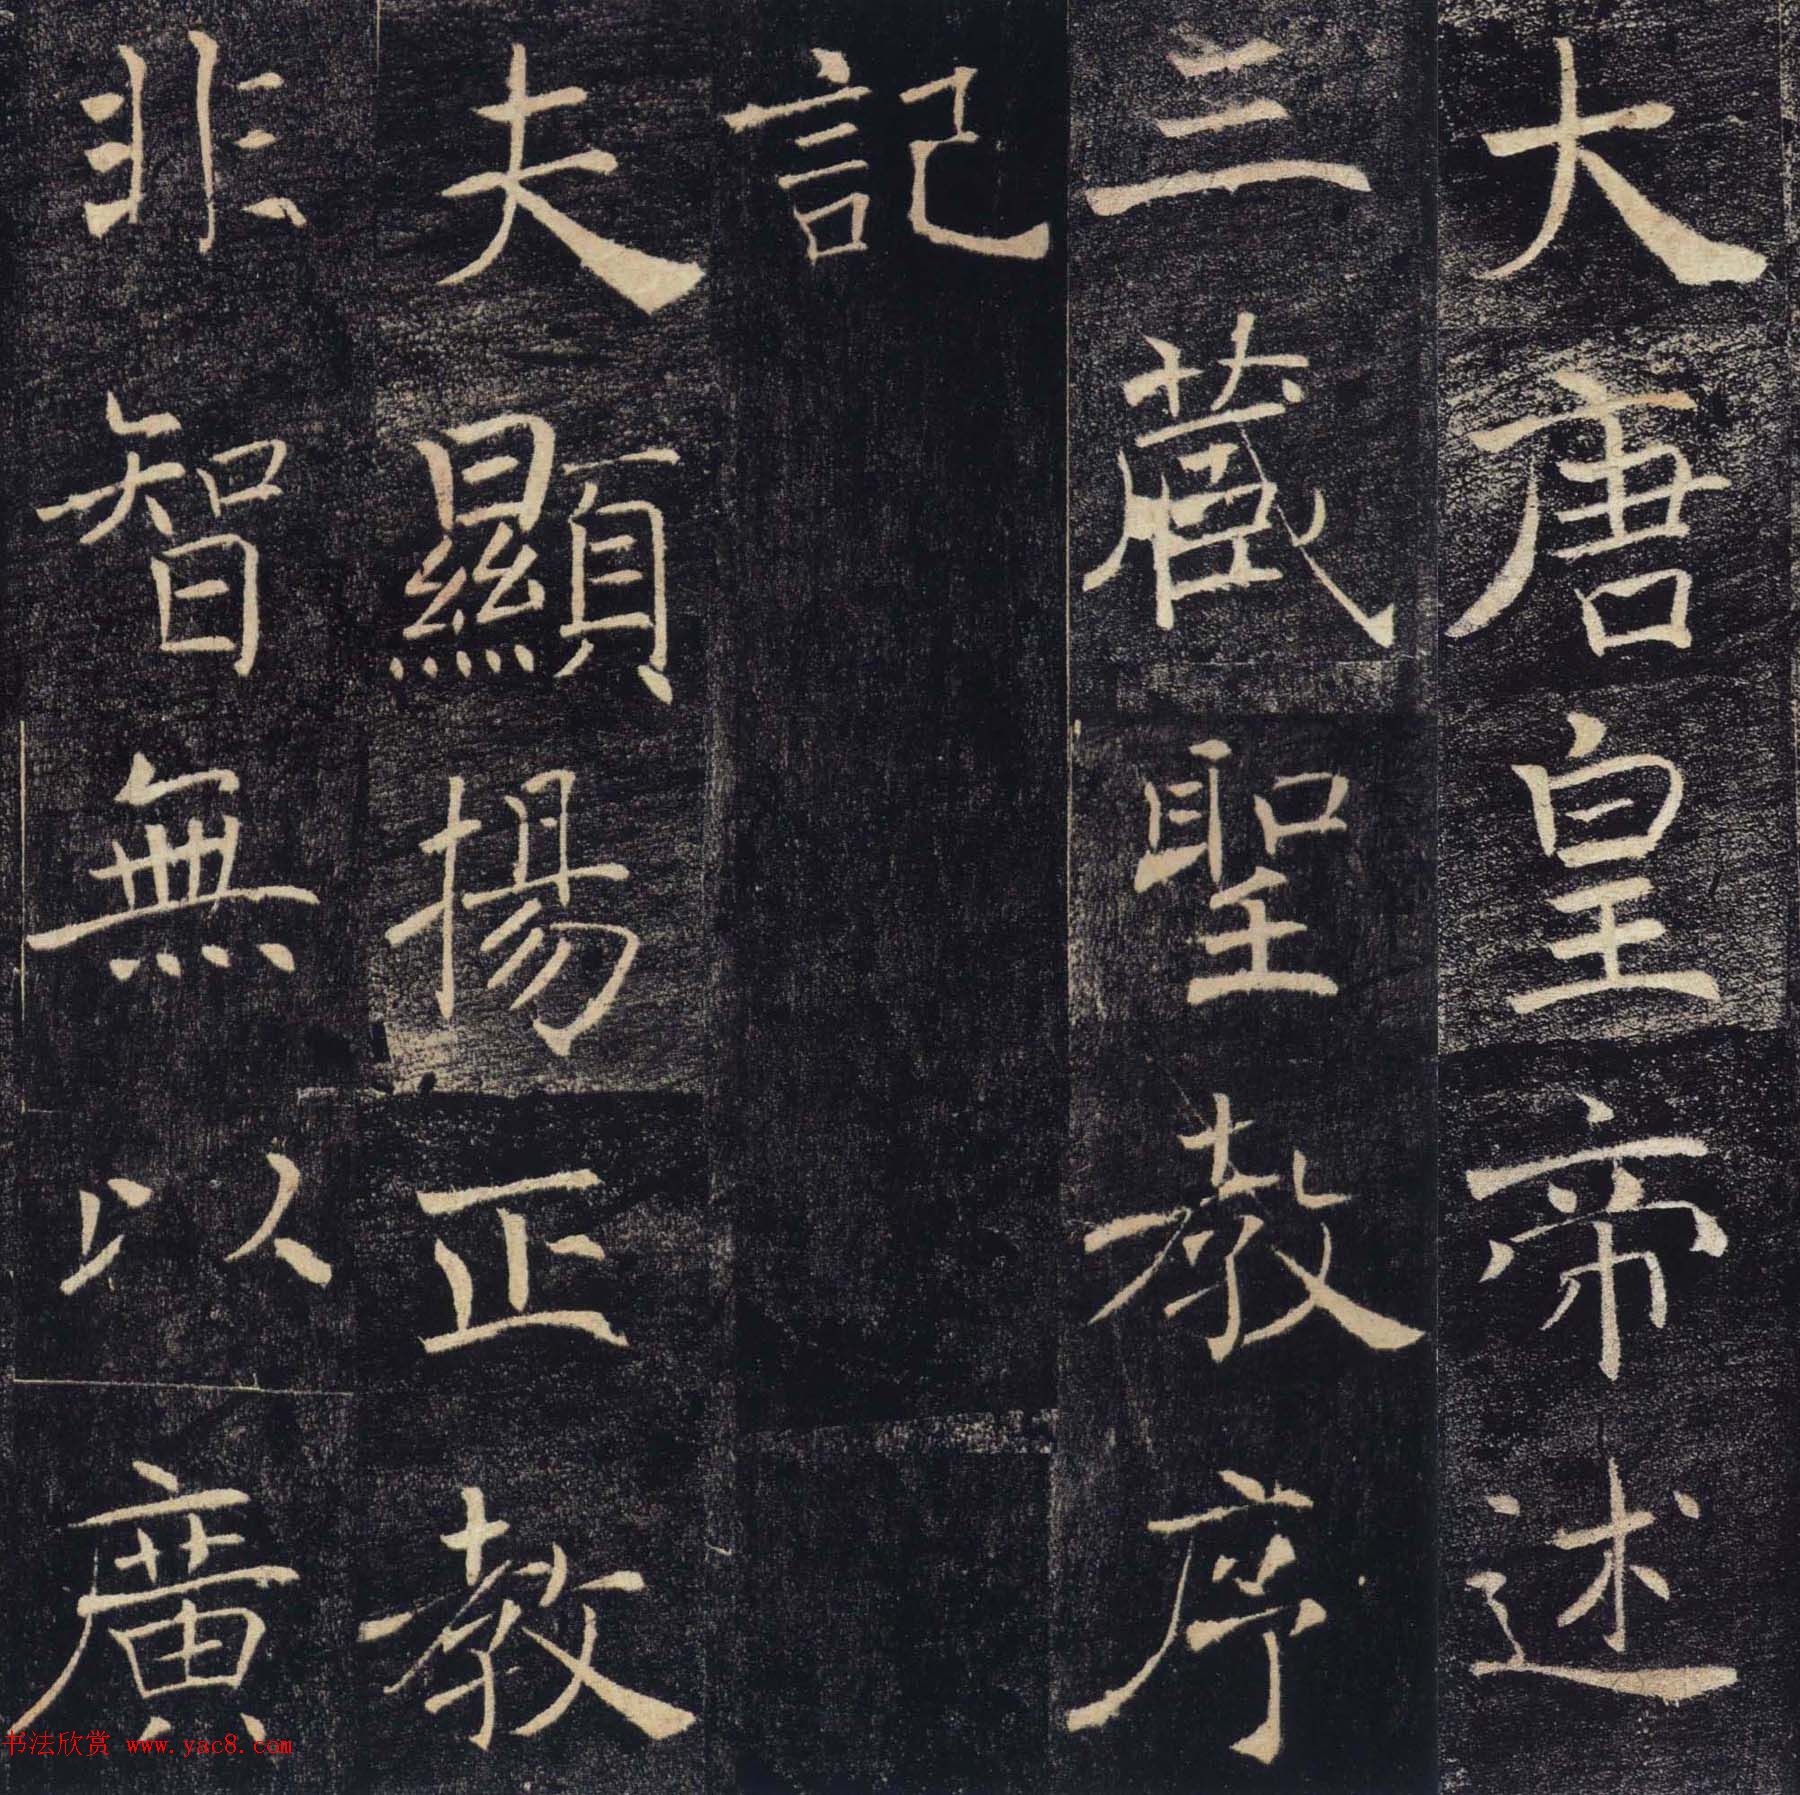 大唐皇帝述
三藏聖教序
記
夫顯揚正教
非智無以廣
书法欣赏 www.yac8.com